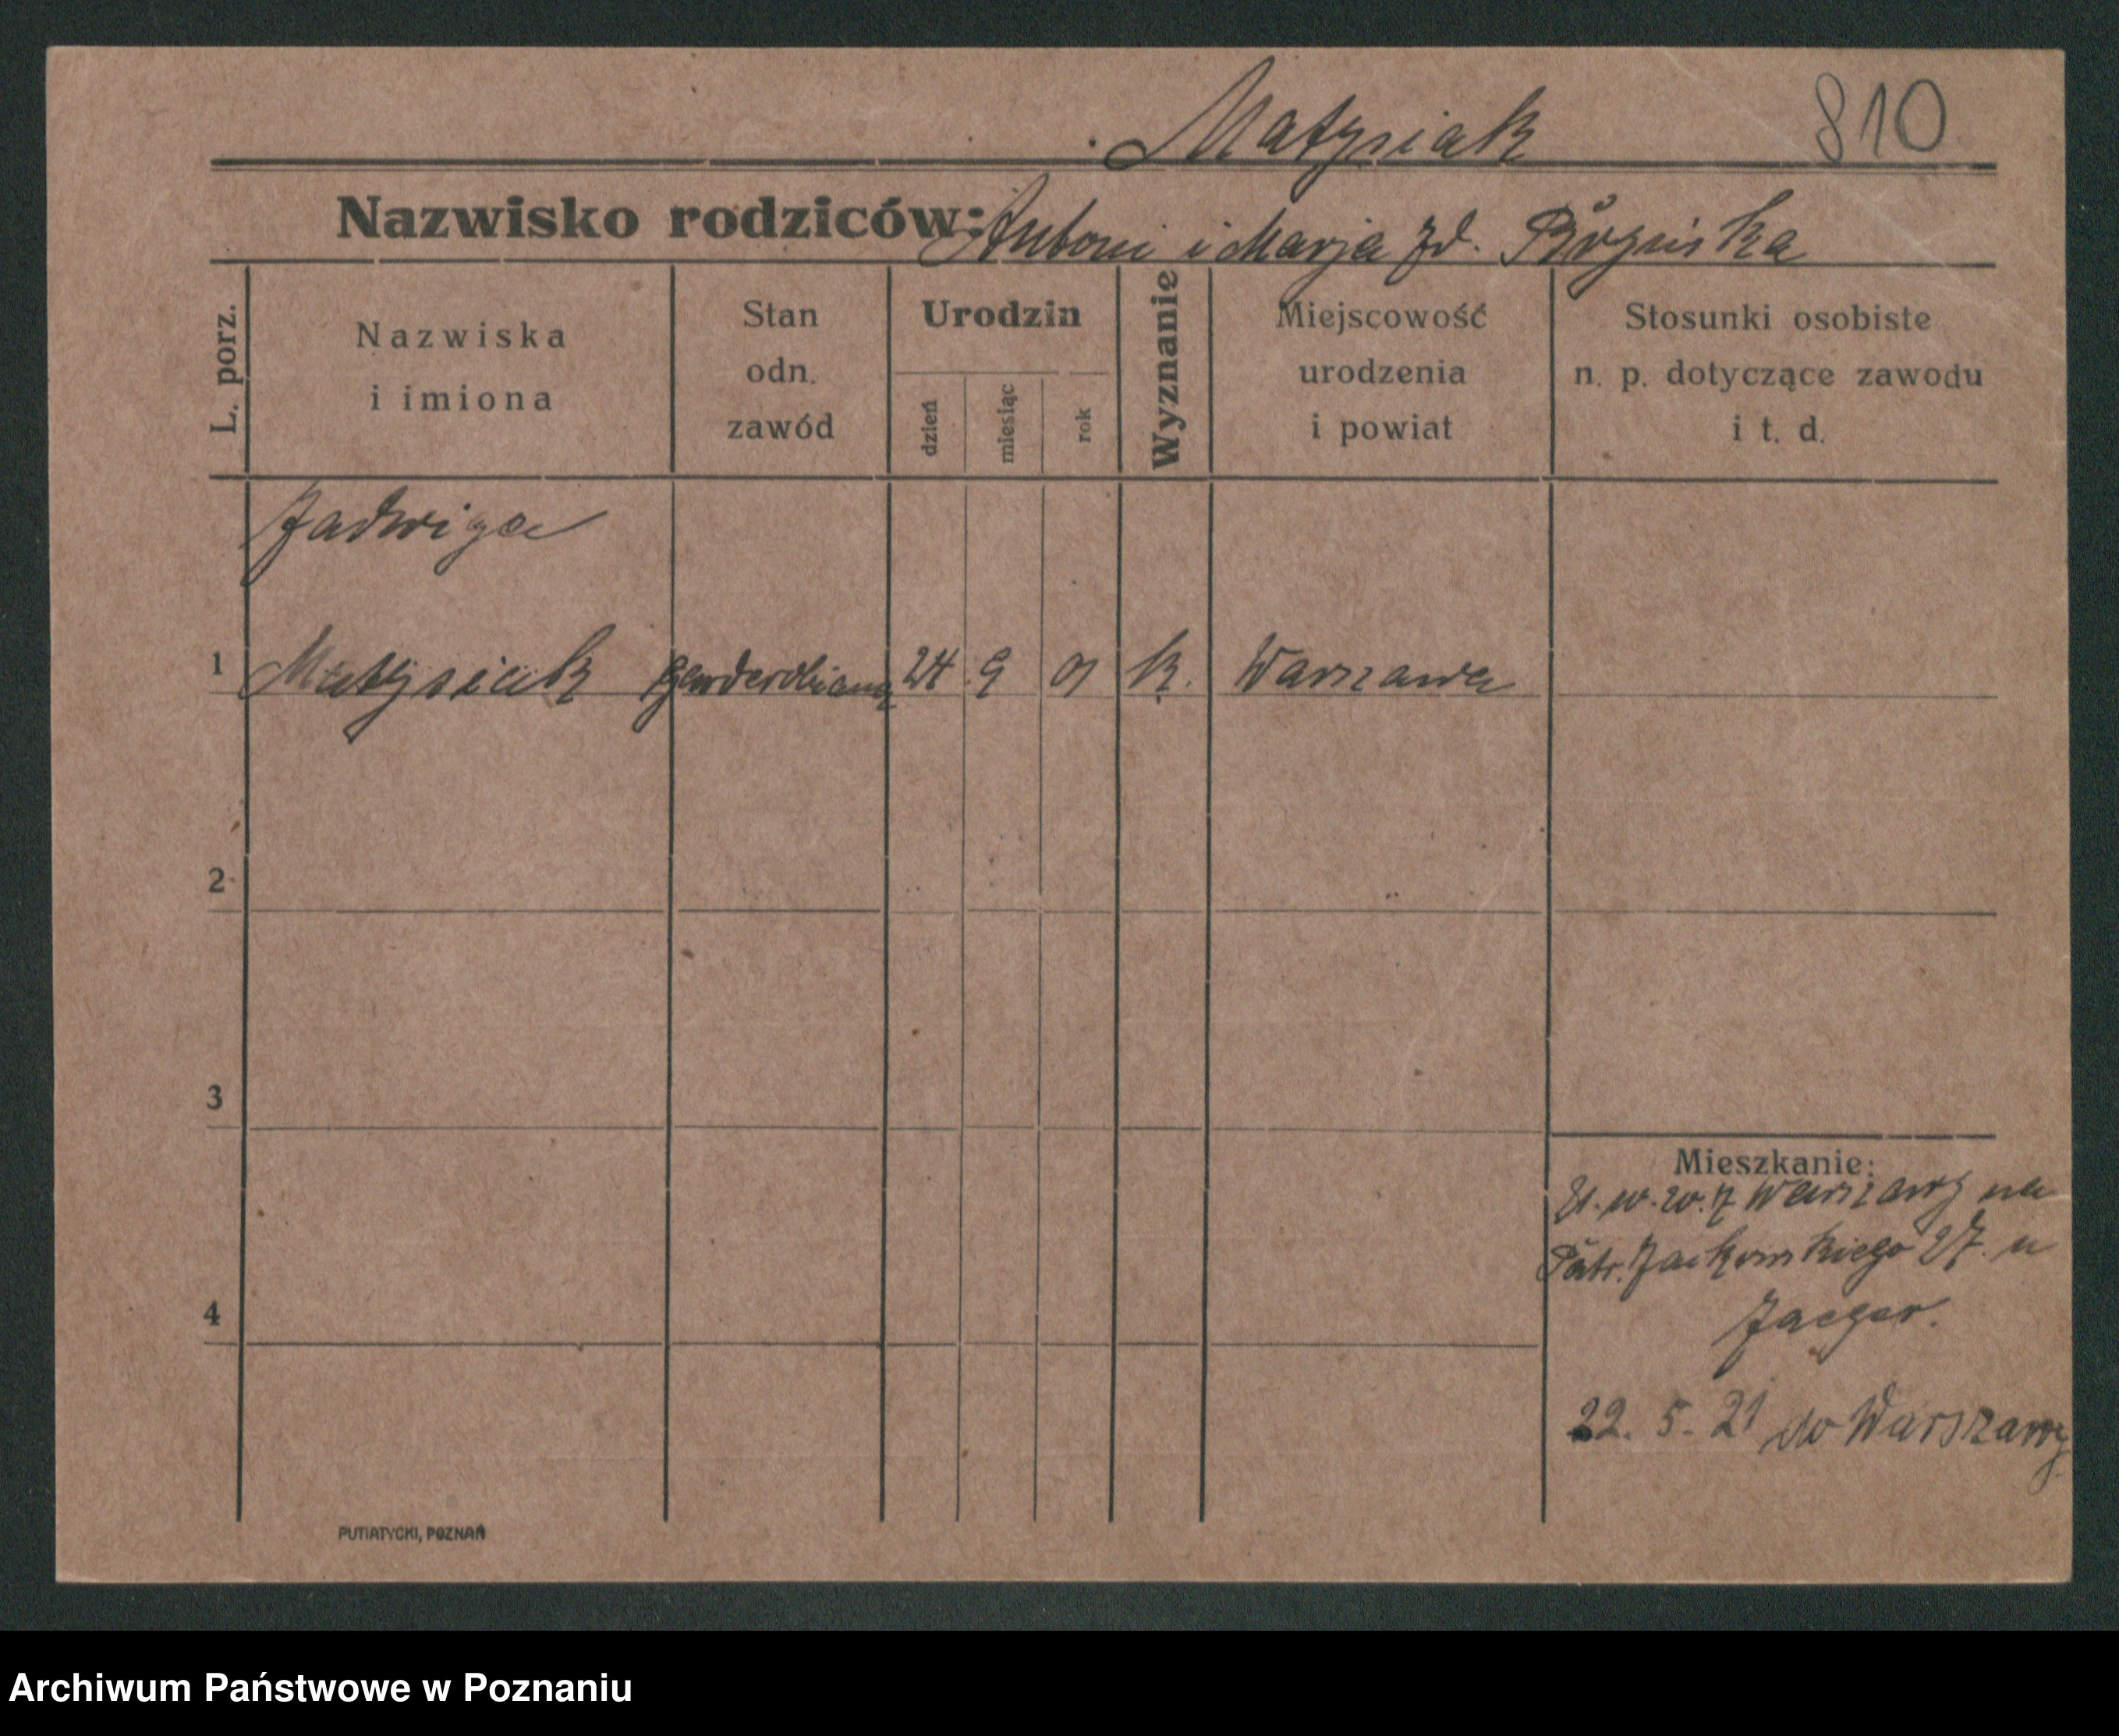 Matysiak 810
Nazwisko rodziców: Antoni i Marja zd.
L. porz.
Nazwiska
i imiona
Stan
odn.
zawód
Urodzin
dzień
miesiąc
rok
Wyznanie
Miejscowość
urodzenia
i powiat
Stosunki osobiste
n. p. dotyczące zawodu
i t. d.
Jadwiga
1 Matysiak garderobiana 24 9 01 k. Warszawa
2
3
4
Mieszkanie:
z Warszawy na
Patr. Jackowskiego 27. u
Jaeger.
22. 5. 21 do Warszawy
PUTIATYCKI, POZNAŃ
Archiwum Państwowe w Poznaniu